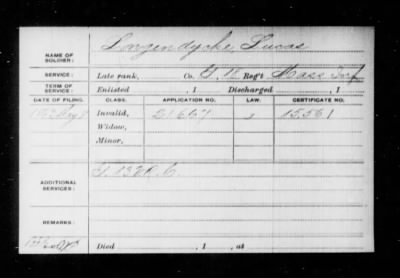 NAME OF SOLDIER:
Longendyche, Lucas
SERVICE:
Late rank, Co. G, 18 Reg't Mass Inf
TERM OF SERVICE:
Enlisted , 1 Discharged , 1
DATE OF FILING. CLASS. APPLICATION NO. LAW. CERTIFICATE NO.
Invalid, 21667 15.561
Widow,
Minor,
ADDITIONAL SERVICES:
V.R.C.
REMARKS:
Died , 1 , at